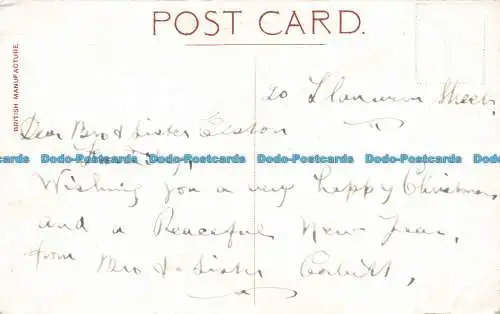 POST CARD.
BRITISH MANUFACTURE.
20 Llanwern Street,
Dear Bro & Sister Elston
Dodo-Postcards Dodo-Postcards Dodo-Postcards Dodo-Postcards Dodo-Postcards
Wishing you a very happy Christmas
and a Peaceful New Year,
from Bro & Sister